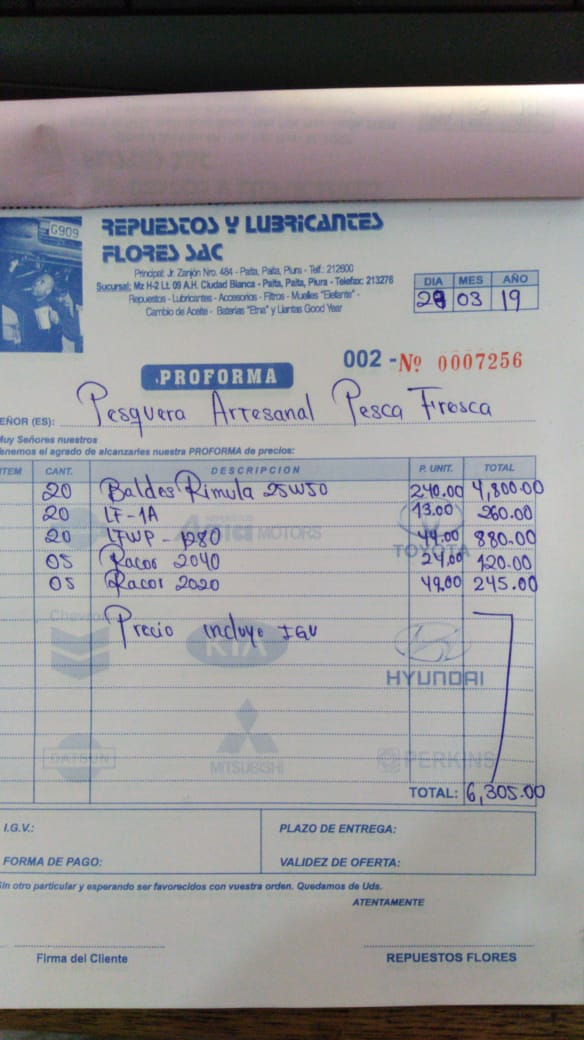 G909
REPUESTOS Y LUBRICANTES
FLORES SAC
Principal: Jr. Zanjón Nro. 484 - Paita, Paita, Piura - Telf.: 212600
Sucursal: Mz H-2 Lt. 09 A.H. Ciudad Blanca - Paita, Paita, Piura - Telefax: 213276
Repuestos - Lubricantes - Accesorios - Filtros - Muelles "Elefante" -
Cambio de Aceite - Baterías "Etna" y Llantas Good Year
DIA MES AÑO
28 03 19
002 - Nº 0007256
PROFORMA
EÑOR (ES): Pesquera Artesanal Pesca Fresca
Muy Señores nuestros
Tenemos el agrado de alcanzarles nuestra PROFORMA de precios:
ITEM CANT. DESCRIPCION P. UNIT. TOTAL
20 Baldes Rimula 25W50 240.00 4,800.00
20 LF-1A 13.00 260.00
20 LFWP - 1280 44.00 880.00
05 Racor 2040 24.00 120.00
05 Racor 2020 49.00 245.00
Precio incluye IGV
MOTORS
TOYOTA
Chevrolet
KIA
HYUNDAI
DATSUN
MITSUBISHI
PERKINS
TOTAL: 6,305.00
I.G.V.: PLAZO DE ENTREGA:
FORMA DE PAGO: VALIDEZ DE OFERTA:
Sin otro particular y esperando ser favorecidos con vuestra orden. Quedamos de Uds.
ATENTAMENTE
Firma del Cliente REPUESTOS FLORES